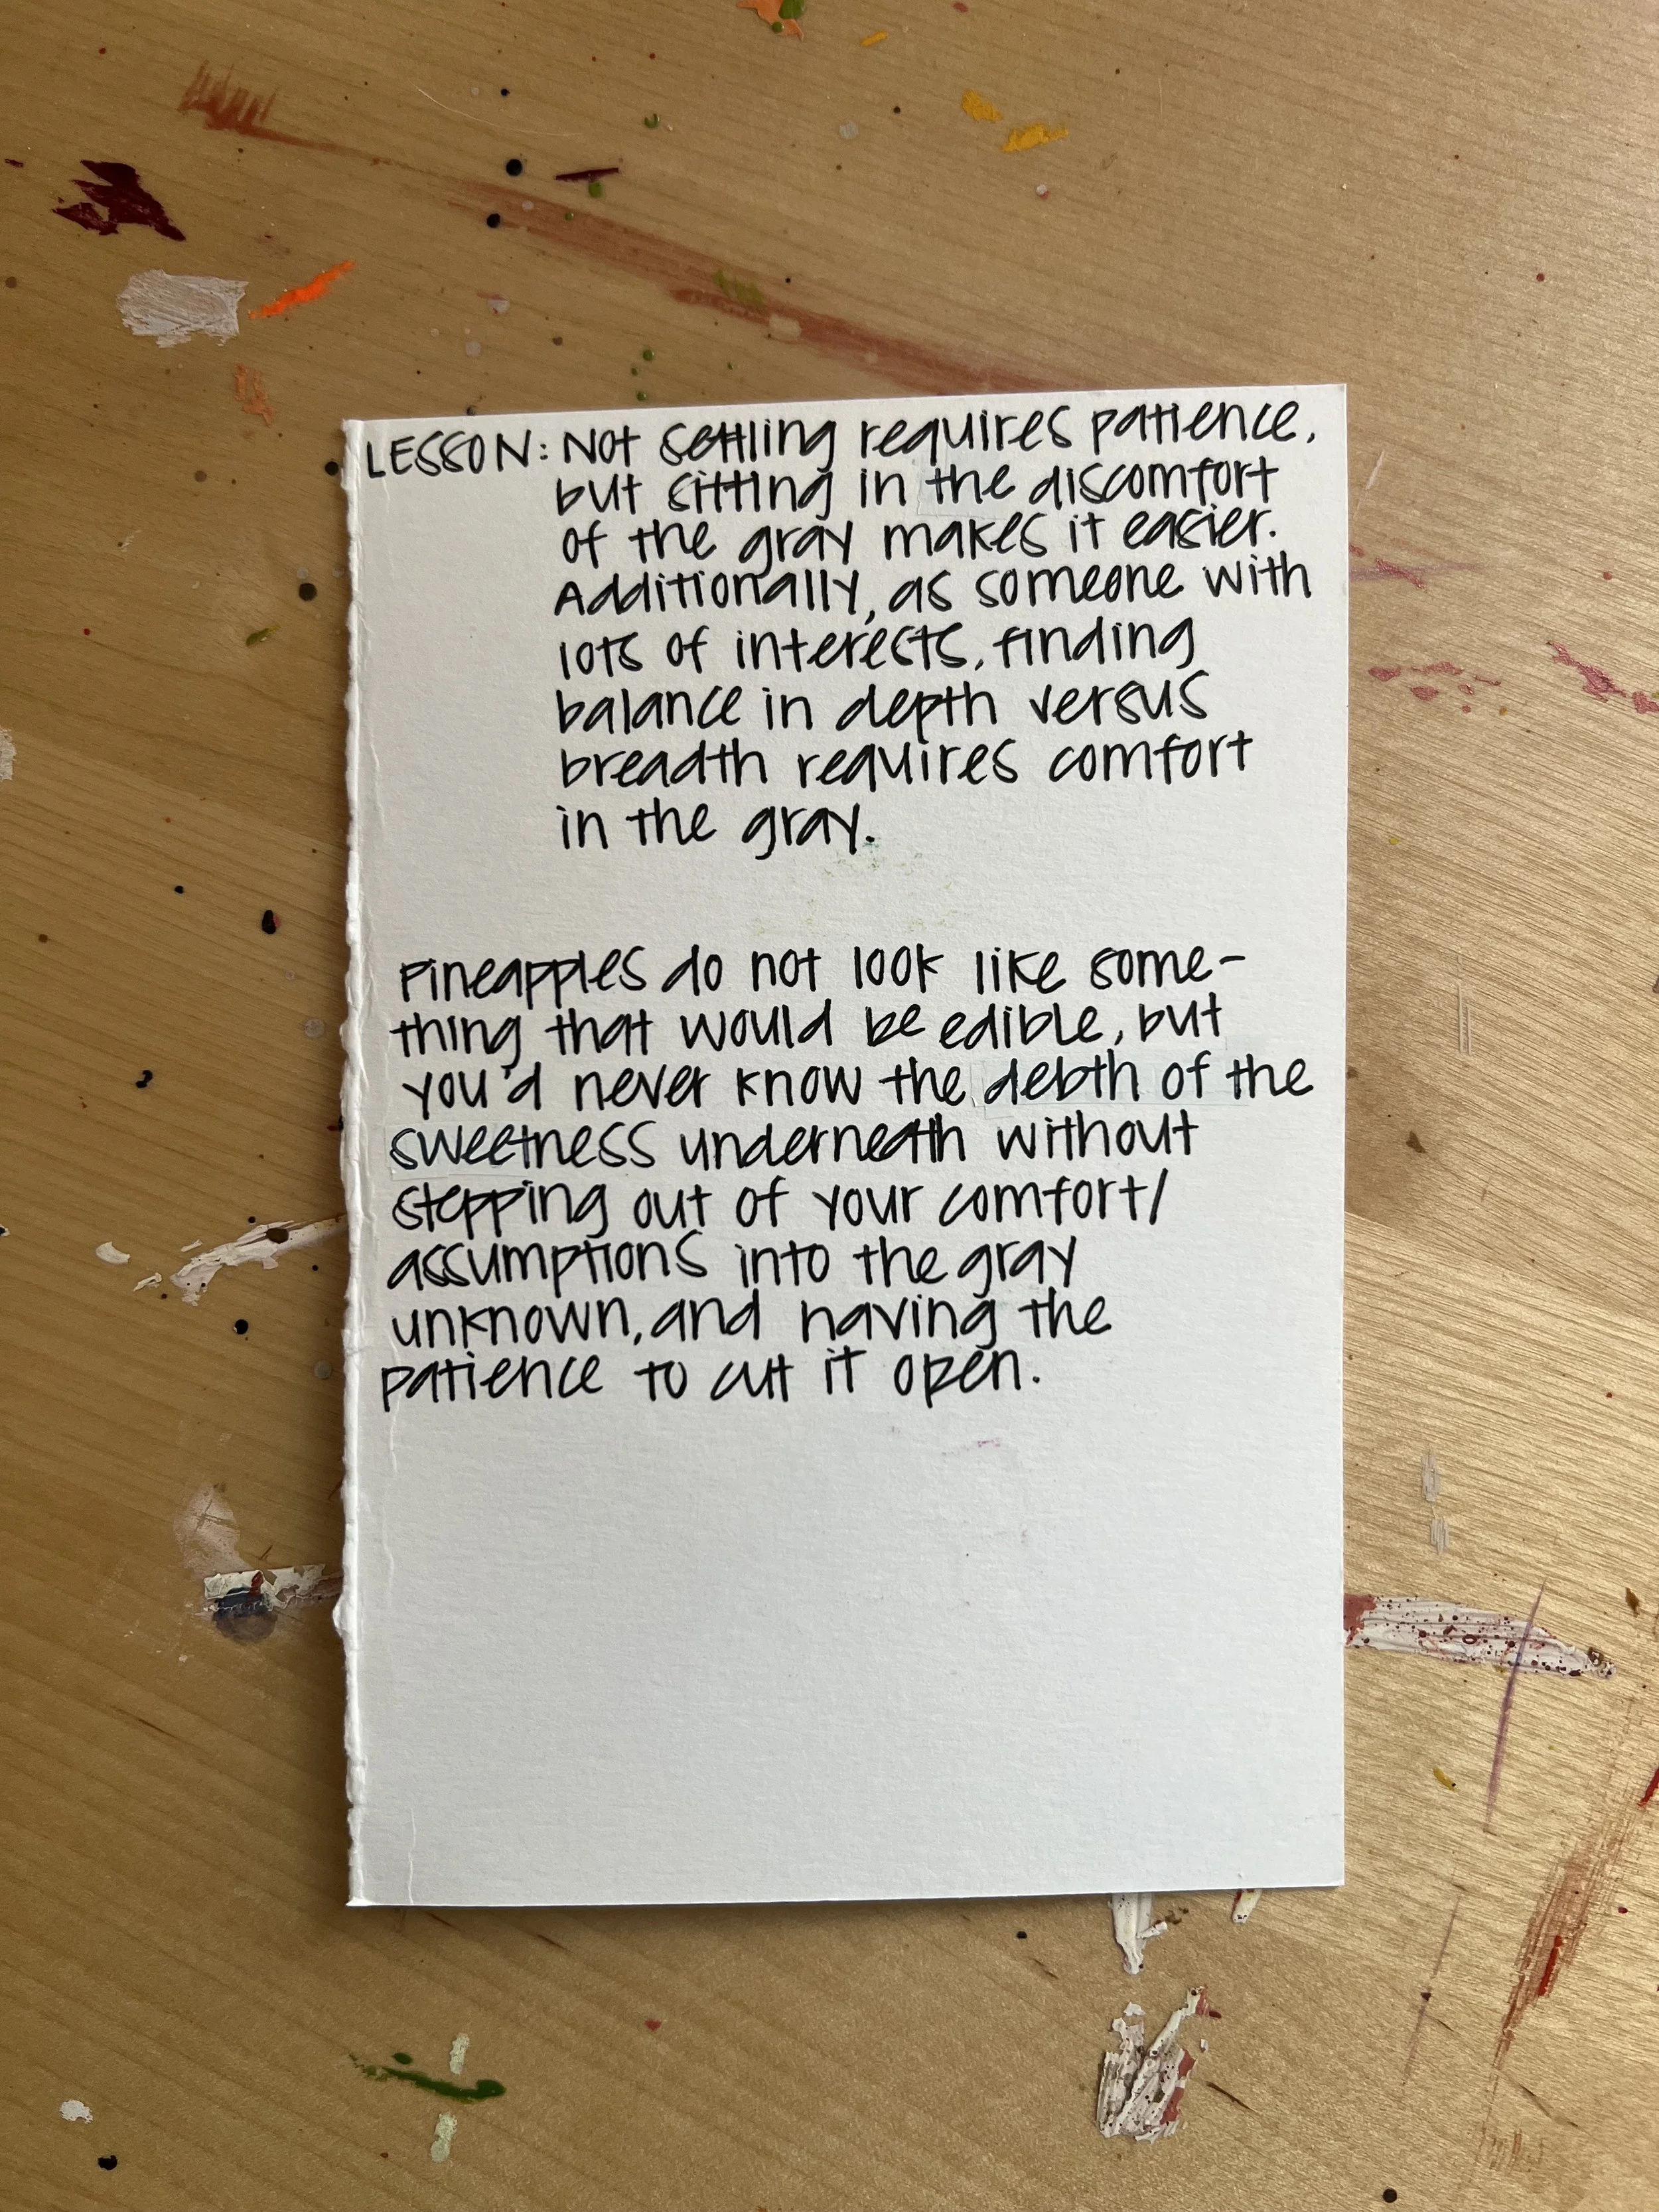 LESSON: Not settling requires patience,
but sitting in the discomfort
of the gray makes it easier.
Additionally, as someone with
lots of interests, finding
balance in depth versus
breadth requires comfort
in the gray.
Pineapples do not look like some-
thing that would be edible, but
you'd never know the debth of the
sweetness underneath without
stepping out of your comfort/
assumptions into the gray
unknown, and having the
patience to cut it open.